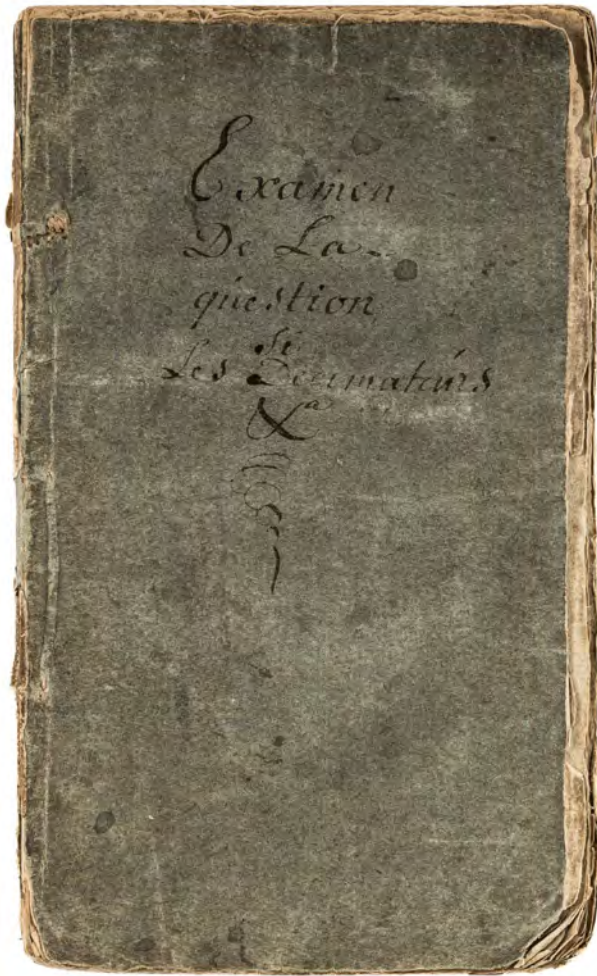 Examen
De La
question
si
Les Decimateurs
&a